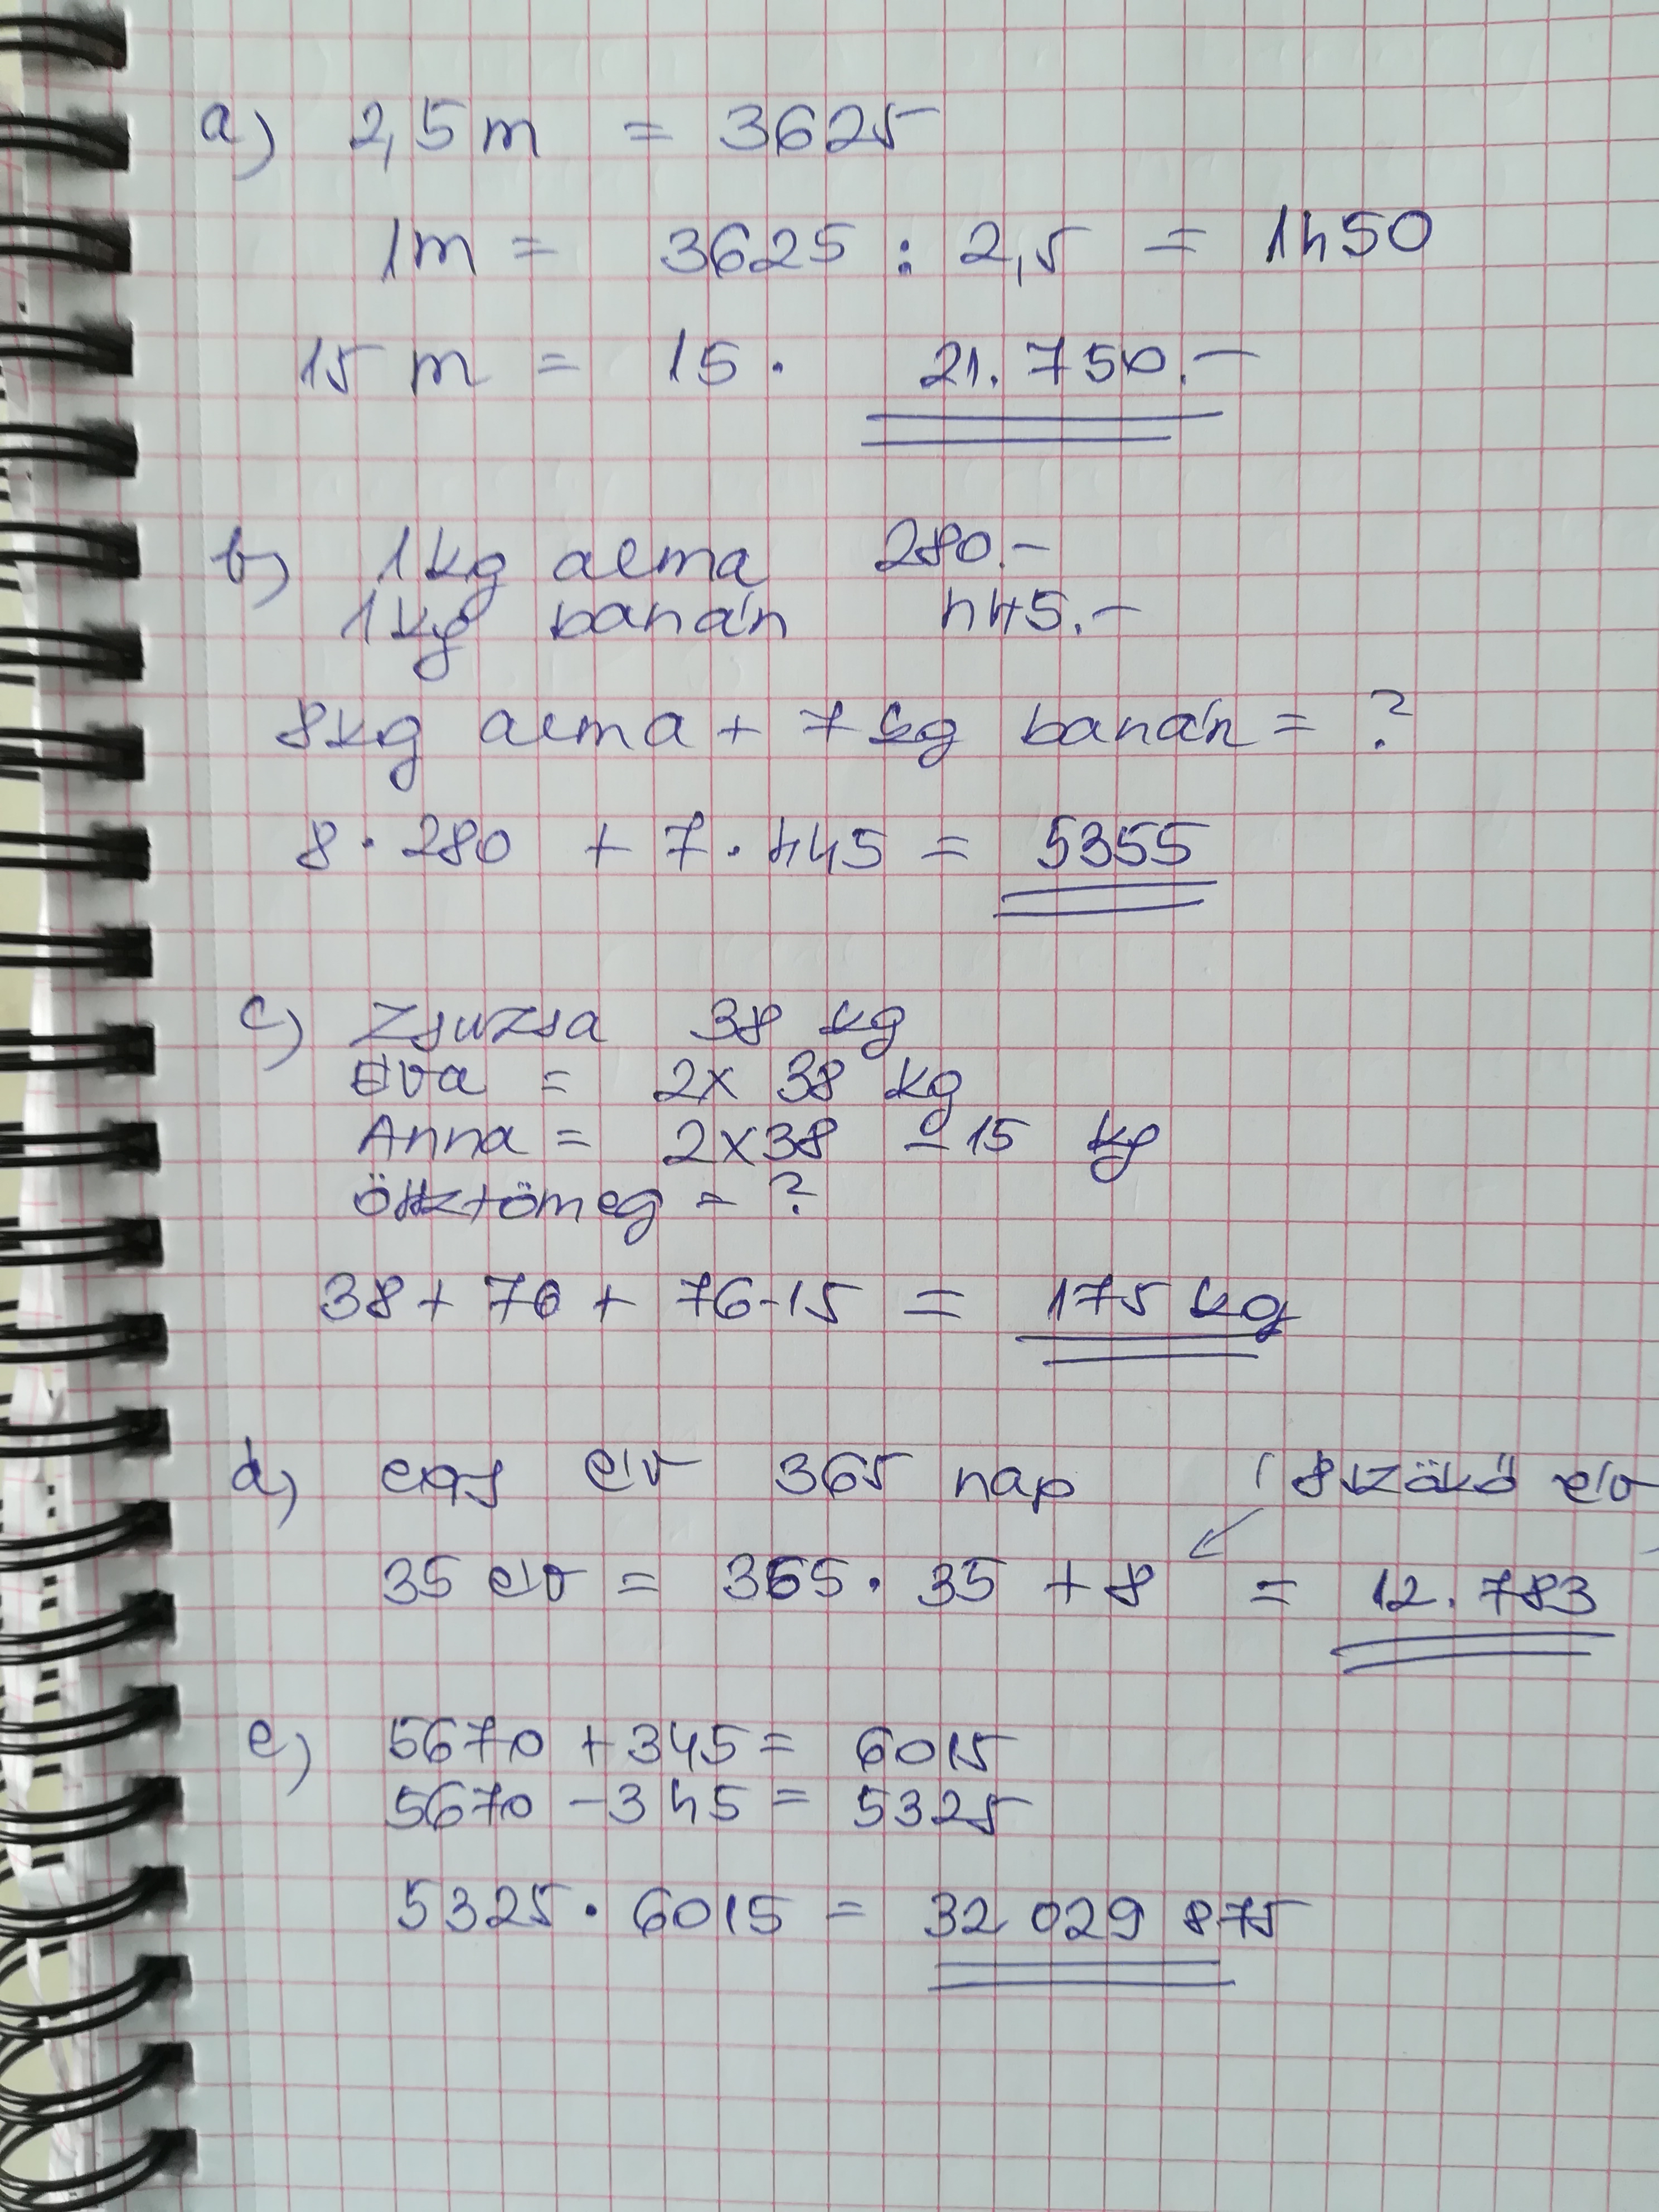 a) 2,5 m = 3625
1m = 3625 : 2,5 = 1450
15 m = 15 · 21.750.-
b) 1kg alma 280.-
1kg banán 445.-
8kg alma + 7 kg banán = ?
8 · 280 + 7 · 445 = 5355
c) Zsuzsa 38 kg
Éva = 2x 38 kg
Anna = 2x38 - 15 kg
össztömeg = ?
38 + 76 + 76-15 = 175 kg
d) egy év 365 nap (8 szökő év
35 év = 365 · 35 + 8 = 12.783
e) 5670 + 345 = 6015
5670 - 345 = 5325
5325 · 6015 = 32 029 875